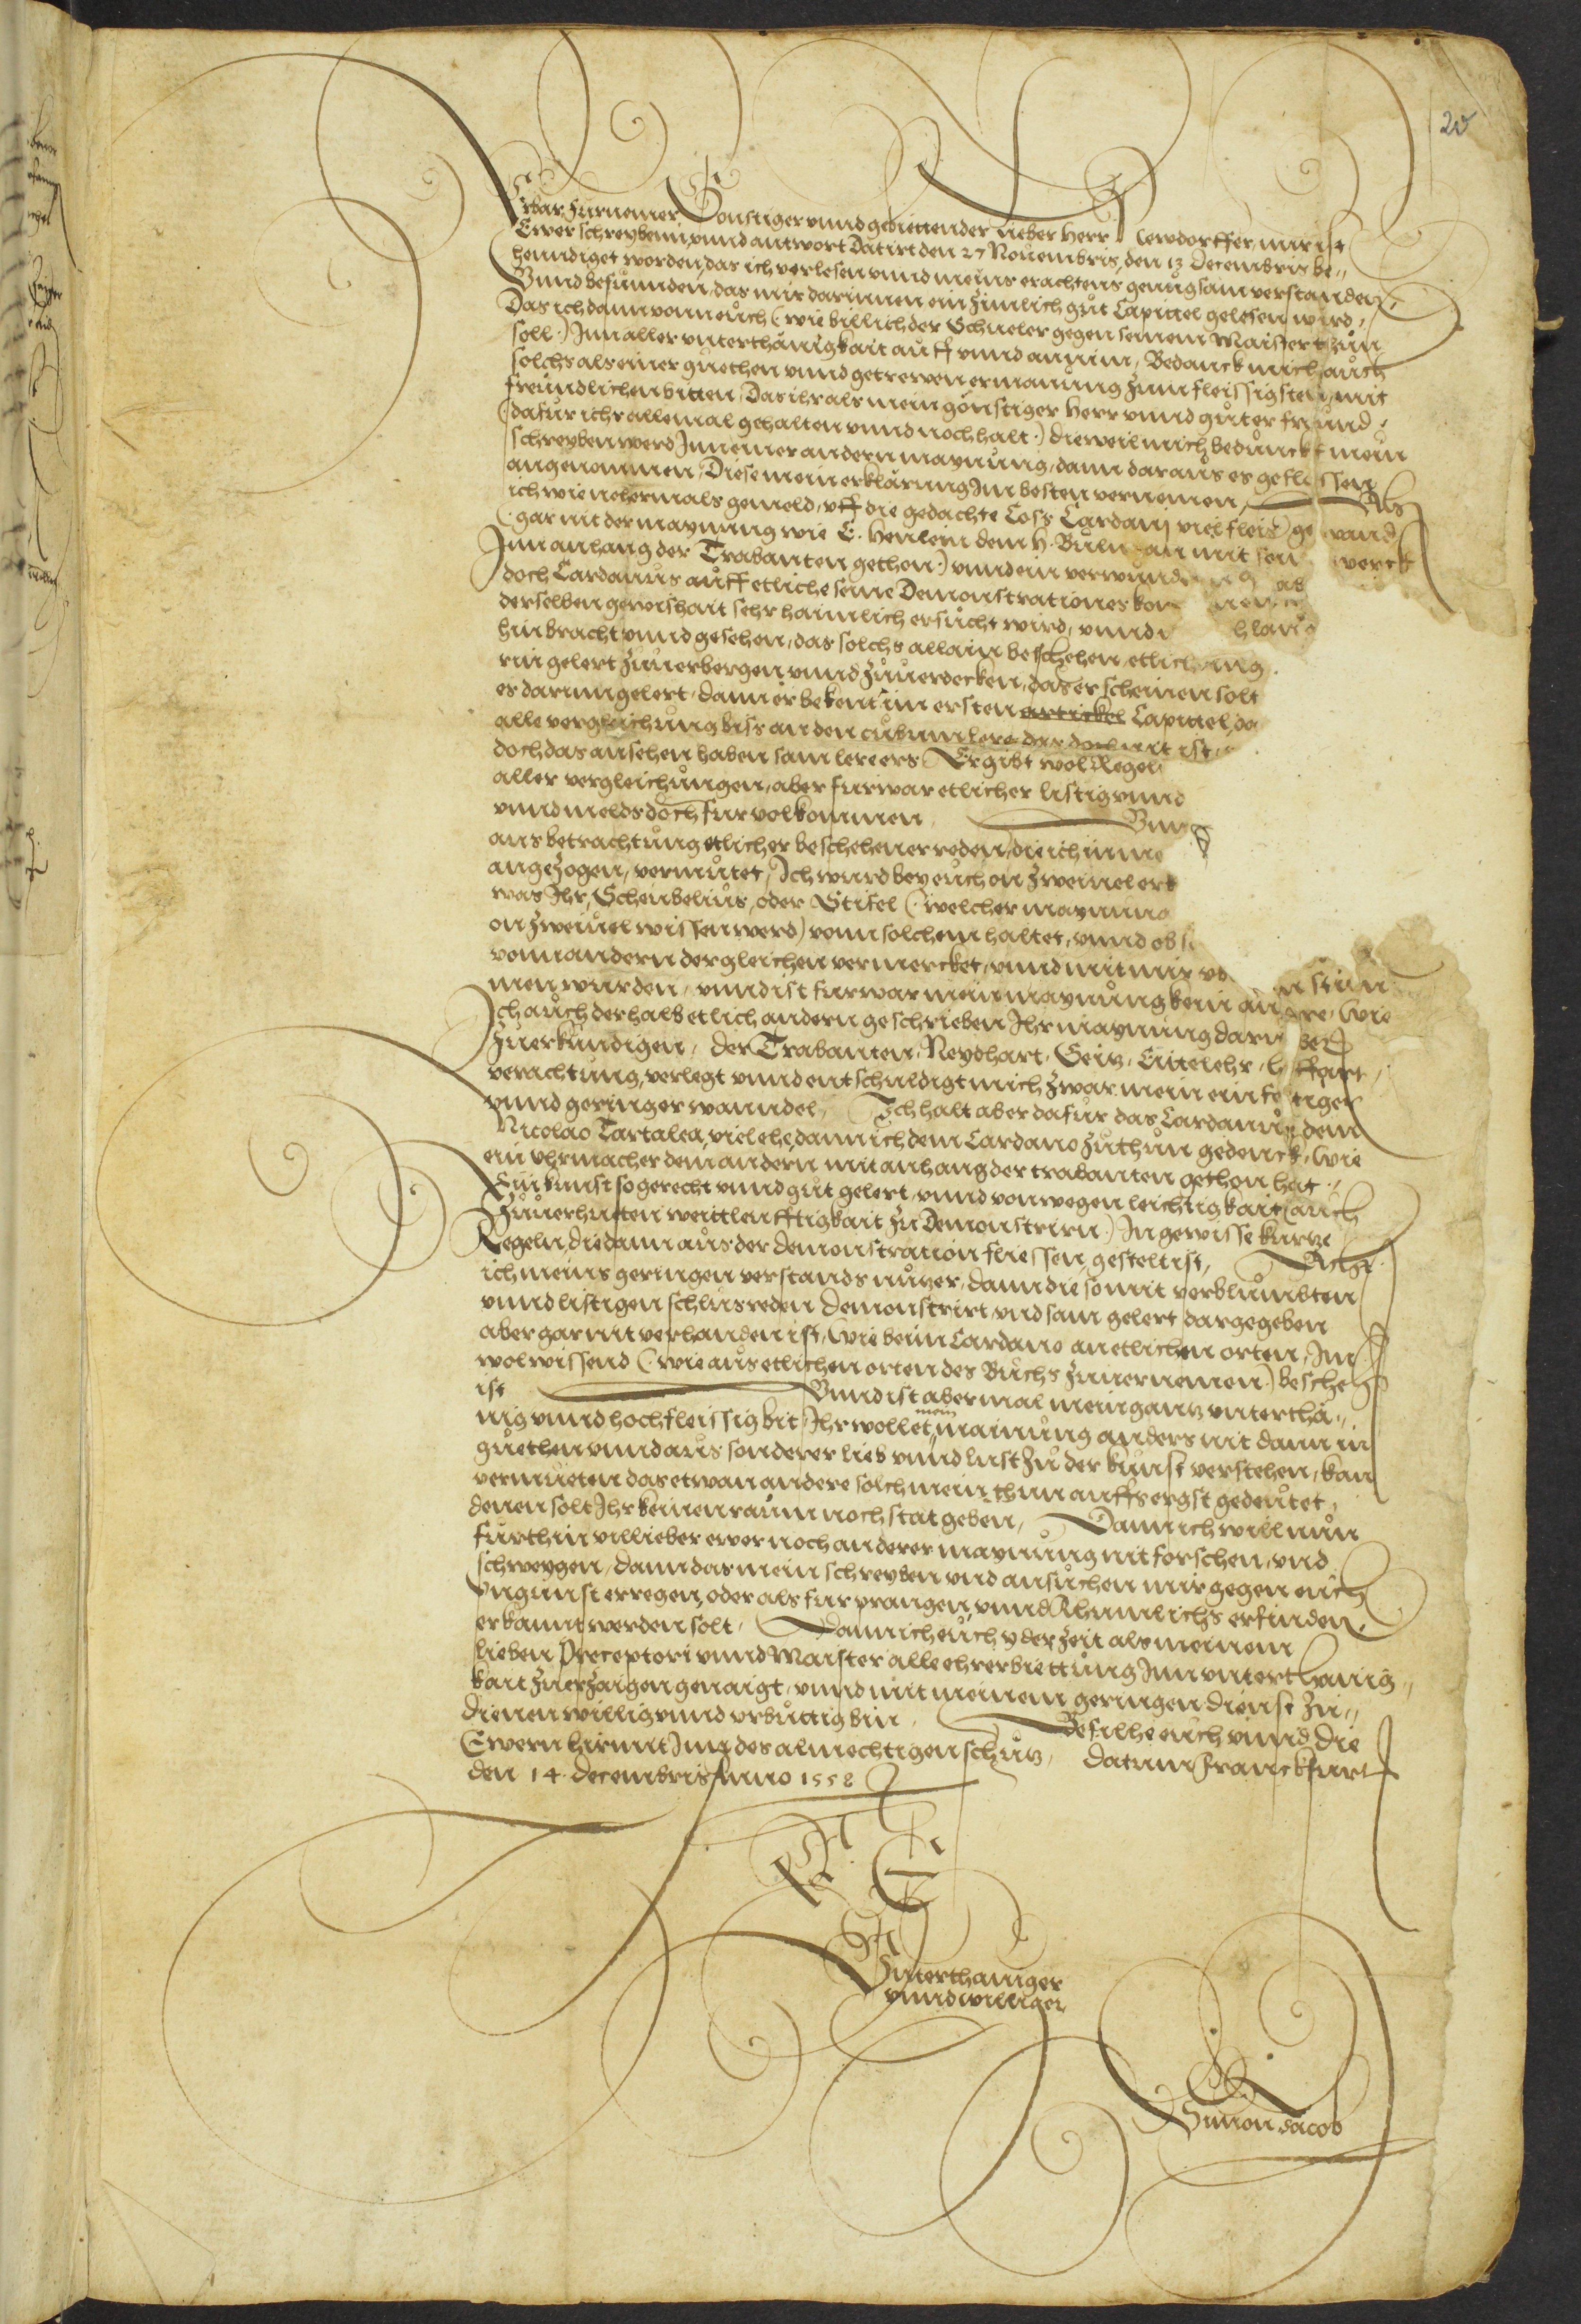 20
Erbar Furnemer Gonstiger vnnd gebiettender lieber Herr Newdorffer mir ist
Ewer schreybenn vnnd antwort Datirt den 27 Nouembris, den 13 Decembris be„
henndiget worden, das ich verlesen vnnd meins erachtens genugsam verstanden,
Vnnd befunnden, das mir darinnen ein zimlich gut Capittel gelesen wird,
Das ich dann vonn euch (wie billich der Schueler gegen seinem Maister thun
soll) Inn aller vnterthänigkait auff vnnd annim, Bedanck mich auch
solchs als einer guethen vnnd getrewen ermanung zum fleissigsten, mit
freundlichen bitten, Das ihr als mein gönstiger Herr vnnd guter freund,
(dafur ichs allemal gehalten vnnd noch halt) dieweil mich bedunckt mein
schreyben werd Inn einer andern maynung, dann daraus es geflossen
angenommen, Diese mein erklärung Im besten vernemen, Als
ich wie nehermals gemeld, vff die gedachte Coss Cardani viel fleis ge wand
(gar nit der maynung wie E. Henlein dem H. an mit sein werck
Inn anhang der Trabanten gethon) vnnd ein verwund
doch Cardanus auff etliche seine Demonstrationes kom
derselben gewishait sehr haimlich ersucht wird, vnnd
hin bracht vnnd gesehen, das solchs allain beschehen, etlich ding
nit gelert zuuerbergen vnnd zuuerdecken, das er scheinen solt
er darinn gelert, dann er bekent im ersten artickel Capittel, da
alle vergleichung biss an den cubum lere das doch nit ist
doch das ansehen haben sam lere ers Er gibt wol Regel
aller vergleichungen, aber furwar etlicher listig vnnd
vnnd melds doch fur volkommen Vnnd
aus betrachtung etlicher beschehener reden, die ich inne
angezogen, vermutet, Ich wurd bey euch on zweiuel erk
was Ihr, Scheubelius, oder Stifel (welcher maynung
on zweiuel wissen werd) vonn solchem haltet, vnnd ob
vonn andern dergleichen vermercket, vnnd mit mir stim
men wurden, vnnd ist furwar mein maynung kein andre, Wie
Ich auch derhalb etlich andern geschrieben Ihr maynung darin
zuerkundigen, Der Trabanten, Neydhart, Geitz, Eittelehr, hoffart,
verachtung, verlegt vnnd entschuldigt mich zwar mein einfeltiger
vnnd geringer wanndel, Ich halt aber dafur das Cardanus dem
Nicolao Tartalea, viel ehe, dann ich dem Cardano zuthun gedenck, Wie
ein vhrmacher dem andern mit anhang der trabanten gethon hat,
Ein kunst so gerecht vnnd gut gelert, vnnd vonwegen leichtigkait (auch
zuuerhuten weittleufftigkait zu Demonstrirn) In gewisse kurtze
Regeln, die dann aus der demonstration fliessen, gestelt ist, Acht
ich meins geringen verstands nutzer, dann die so mit verblumbten
vnnd listigen schlusreden Demonstrirt, vnd sam gelert dargegeben
aber gar nit verhanden ist, Wie beim Cardano an etlichen orten, Im
wol wissend (wie aus etlichen orten des Buchs zuuernemen) beschehen
ist Vnnd ist abermal mein gantz vnterthä„
nig vnnd hochfleissig bit, Ihr wollet mein mainung anders nit dann in
guethen vnnd aus sonderer lieb vnnd lust zu der kunst verstehen, kan
vermueten das etwan andere solch mein thun auffs ergst gedeutet,
denen solt Ihr keinen raum noch stat geben, Dann ich will nun
furthin villieber ewer noch anderer maynung nit forschen, vnd
schweygen, dann das mein schreyben vnd ansuchen mir gegen euch
vngunst erregen, oder als fur prangen, vnnd Rhumlichs erfinden,
erkannt werden solt, Dann ich euch yder zeit als meinem
lieben Preceptori vnnd Maister alle ehrerbiettung Inn vnterthenig„
kait zuerzaigen genaigt, vnnd mit meinem geringen dienst zu„
dienen willig vnnd vrbuttig bin, Befilhe euch vnnd die
Ewern hirmit Inn des almechtigen schutz, Datum Franckfurt
den 14. Decembris Anno 1558
E
Vnterthäniger
vnnd williger
Simon Jacob